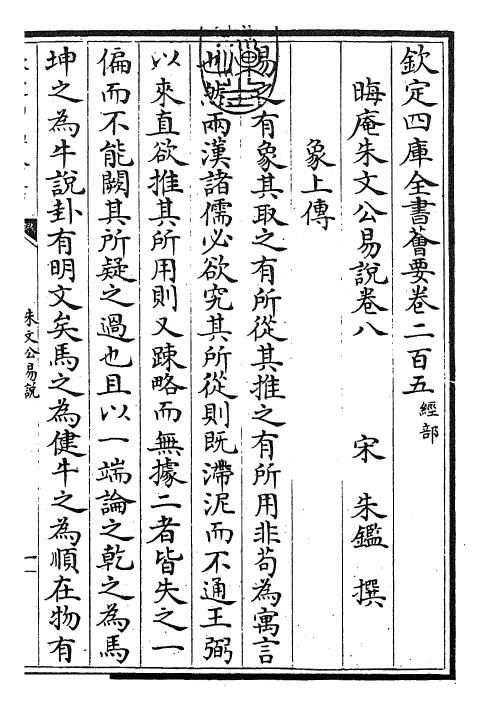 欽定四庫全書薈要卷二百五 經部
晦庵朱文公易說卷八 宋 朱鑑 撰
象上傳
易之有象其取之有所從其推之有所用非苟為寓言
也然兩漢諸儒必欲究其所從則既滯泥而不通王弼
以來直欲推其所用則又踈略而無據二者皆失之一
偏而不能闕其所疑之過也且以一端論之乾之為馬
坤之為牛說卦有明文矣馬之為健牛之為順在物有
朱文公易說
一